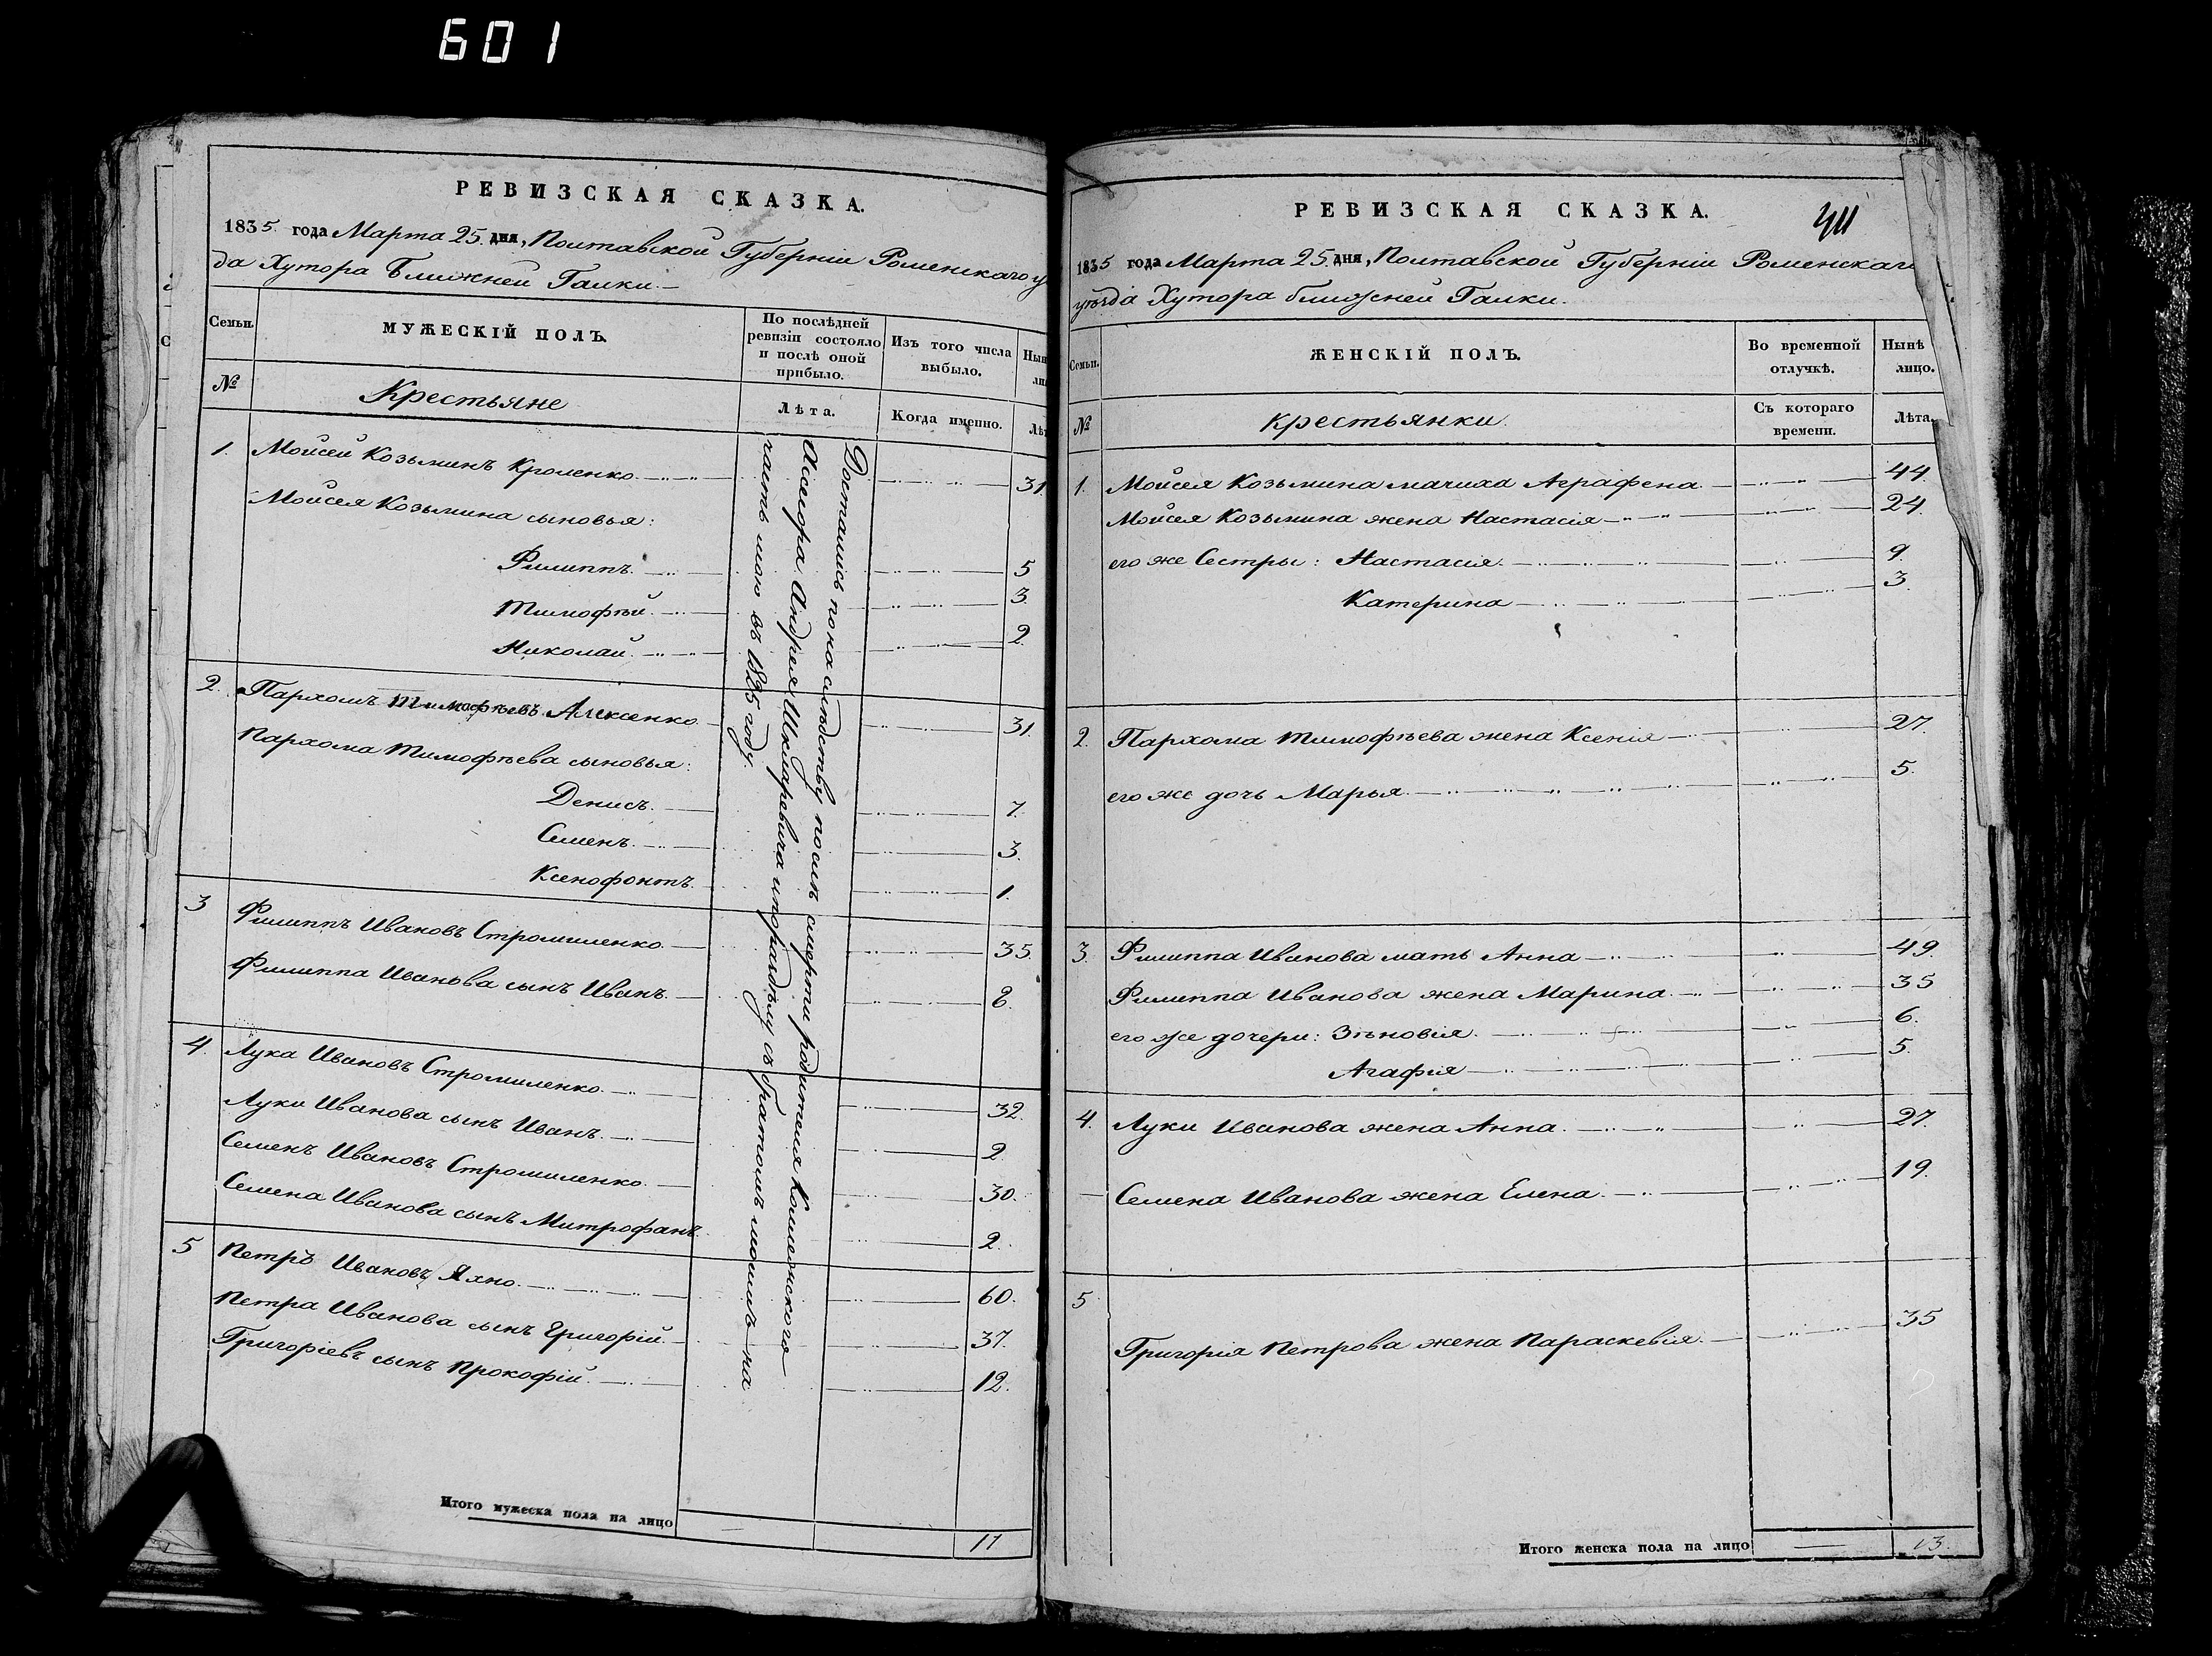 601
РЕВИЗСКАЯ СКАЗКА.
1835. года Марта 25. дня, Полтавской Губерніи Роменскаго уѣ
да Хутора Ближней Галки.
Семьи.
МУЖЕСКІЙ ПОЛЪ.
По послѣдней ревизіи состояло и послѣ оной прибыло.
Изъ того числа выбыло.
№
Крестьяне
Лѣта.
Когда именно.
1. Моисей Козьминъ Кроленко 31.
Моисея Козьмина сыновья:
Филиппъ. 5
Тимофѣй. 3.
Николай. 2.
2. Пархомъ Тимофѣевъ Алексенко. 31.
Пархома Тимофѣева сыновья:
Денисъ. 7.
Семенъ. 3.
Ксенофонтъ. 1.
3 Филиппъ Ивановъ Стромиленко. 35.
Филиппа Иванова сынъ Иванъ. 2.
4. Лука Ивановъ Стромиленко. 32.
Луки Иванова сынъ Иванъ. 2
Семенъ Ивановъ Стромиленко. 30.
Семена Иванова сынъ Митрофанъ. 2.
5 Петръ Ивановъ Яхно. 60.
Петра Иванова сынъ Григорій. 37.
Григоріевъ сынъ Прокофій. 12.
Достались по наслѣдству послѣ смерти родителя Коллежского
Ассесора Андрея Шкляревича и по раздѣлу съ братомъ моимъ на
часть мою въ 1835 году.
Итого мужеска пола на лицо 17
РЕВИЗСКАЯ СКАЗКА.
1835 года Марта 25. дня, Полтавской Губерніи Роменскаго
уѣзда Хутора ближней Галки.
Семьи.
ЖЕНСКІЙ ПОЛЪ.
Во временной отлучкѣ.
Нынѣ лицо.
№
крестьянки.
Съ котораго времени.
Лѣта.
1. Моисея Козьмина мачиха Аграфена. 44.
Моисея Козьмина жена Настасія 24.
его же Сестры: Настасія. 9.
Катерина 3.
2. Пархома Тимофѣева жена Ксенія 27.
его же дочь Марья. 5.
3. Филиппа Иванова мать Анна 49.
Филиппа Иванова жена Марина. 35
его же дочери: Зѣновія. 6.
Агафія 5.
4. Луки Иванова жена Анна. 27.
Семена Иванова жена Елена. 19.
5
Григорія Петрова жена Параскевія. 35
Итого женска пола на лицо 13.